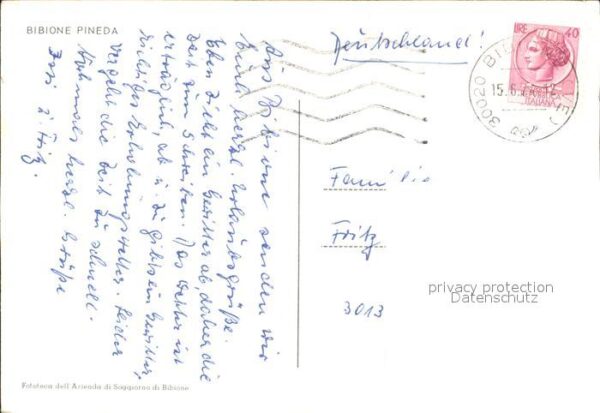 BIBIONE PINEDA
Deutschland!
LIRE 40
ITALIANA
30020 BIBIONE (VE)
15.6.
12
Aus Bibione senden wir
Euch herzl. Urlaubsgrüße.
Eben zieht ein Gewitter ab, daher die
Zeit zum Schreiben. Das Wetter ist
erträglich, ab u. zu gibts ein Gewitter,
richtiges Erholungswetter. Leider
vergeht die Zeit zu schnell.
Nochmals herzl. Grüße
u. Fritz.
Familie
Fritz
3013
privacy protection
Datenschutz
Fototeca dell'Azienda di Soggiorno di Bibione